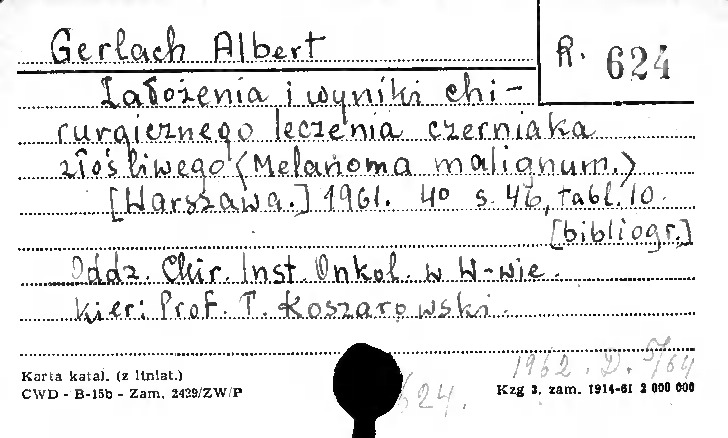 Gerlach Albert
R. 624
Założenia i wyniki chi-
rurgicznego leczenia czerniaka
złośliwego (Melanoma malignum.)
[Warszawa.] 1961. 4° s. 46, tabl. 10.
[bibliogr.]
Oddz. Chir. Inst. Onkol. w W-wie.
Kier: Prof. T. Koszarowski.
1962. D. 5/64
Karta katal. (z liniat.)
CWD - B-15b - Zam. 2429/ZW/P
624.
Kzg 3, zam. 1914-61 2 000 000